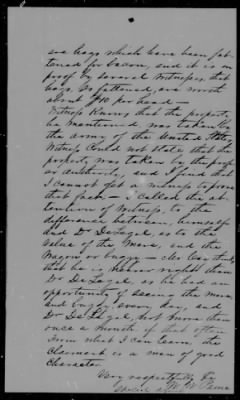 hogs which have been fat-
tened for bacon, and it is in
proof by several witnesses, that
hogs, so fattened, are worth
about $10 per head —
Witness Knows that the property,
he mentioned was taken by
the army of the United States
Witness could not state that the
property was taken by the proper
authority, and I find that
I cannot get a witness to prove
that fact — I called the at-
tention of Witness, to the
difference between, himself
and Dr as to the
value of the Mare, and the
Wagon or buggy — he states,
that he is, nearer right than
Dr as he had an
opportunity of seeing the mare,
and buggy every day, and
Dr not more than
once a month if that often
From what I can learn the
Claimant is a man of good
Character
Very respectfully
W. W.